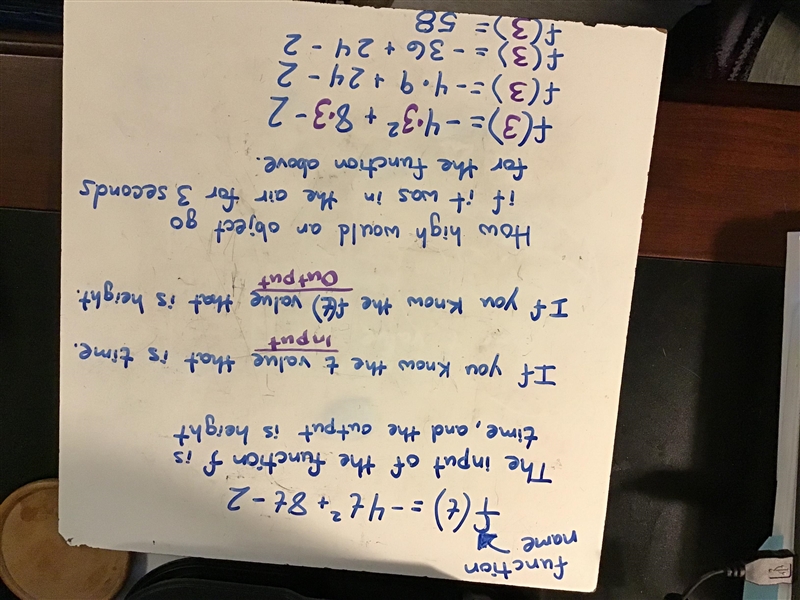 function
name
f(t) = -4t² + 8t - 2
The input of the function f is
time, and the output is height
If you know the t value that is time.
Input
If you know the f(t) value that is height.
Output
How high would an object go
if it was in the air for 3 seconds
for the function above.
f(3) = -4·3² + 8·3 - 2
f(3) = -4·9 + 24 - 2
f(3) = -36 + 24 - 2
f(3) = 58